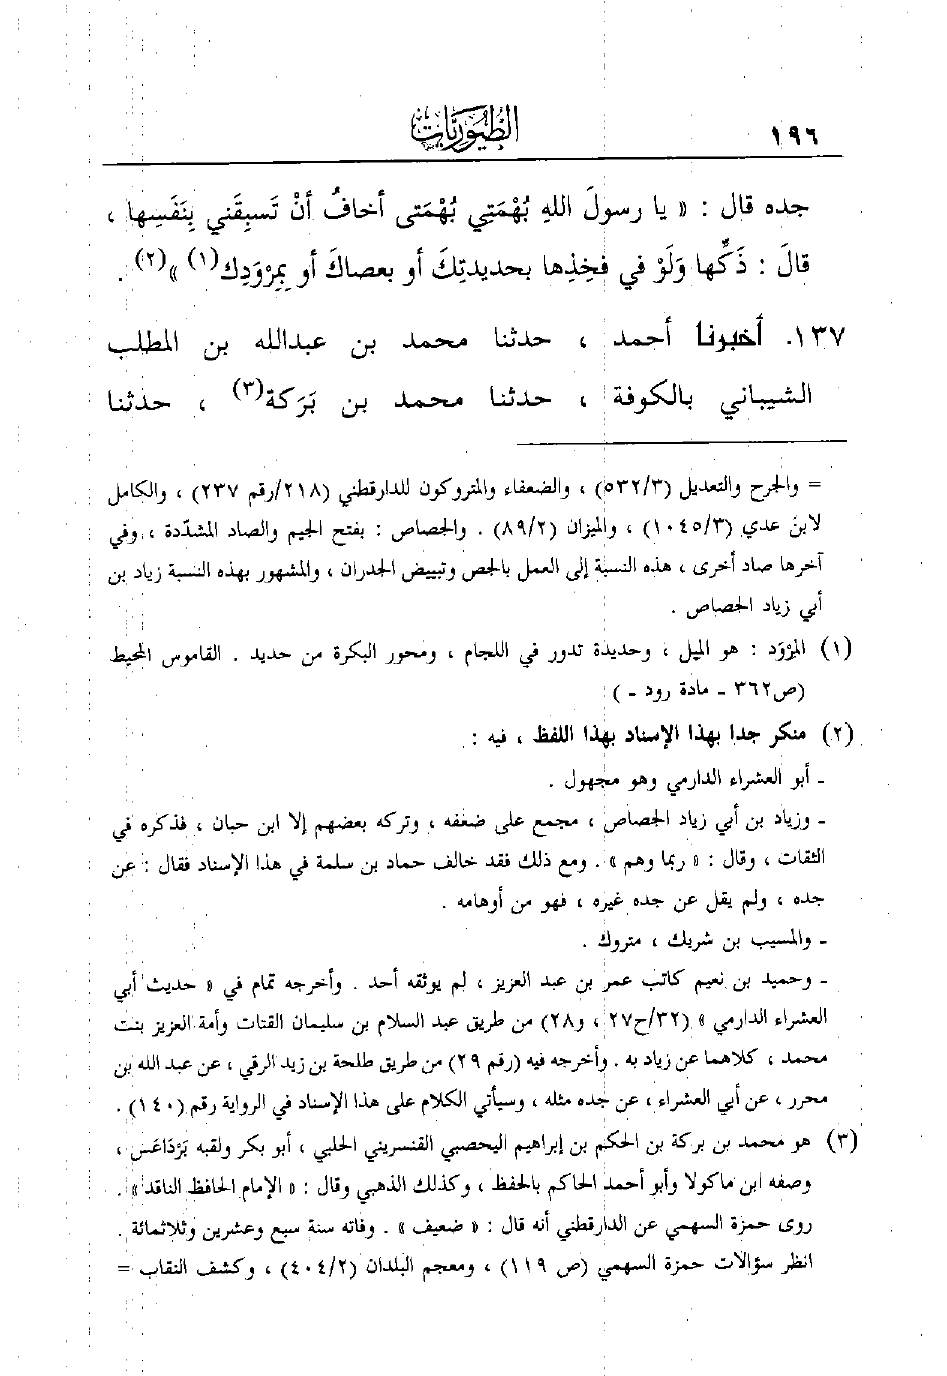 ١٩٦
الطيوريات
جده قال : « يا رسولَ اللهِ بُهْمَتِي بُهْمَتي أخافُ أنْ تَسبِقَني بِنَفَسِها ،
قالَ : ذَكِّها وَلَوْ في فخِذِها بحديدتِكَ أو بعصاكَ أو بِمِرْوَدِك(١) »(٢) .
١٣٧. أخبرنا أحمد ، حدثنا محمد بن عبدالله بن المطلب
الشيباني بالكوفة ، حدثنا محمد بن بَرَكة(٣) ، حدثنا
= والجرح والتعديل (٥٣٢/٣) ، والضعفاء والمتروكون للدارقطني (٢١٨/رقم ٢٣٧) ، والكامل
لابن عدي (١٠٤٥/٣) ، والميزان (٨٩/٢) . والجصاص : بفتح الجيم والصاد المشدّدة ، وفي
آخرها صاد أخرى ، هذه النسبة إلى العمل بالجص وتبييض الجدران ، والمشهور بهذه النسبة زياد بن
أبي زياد الجصاص .
(١) المِرْوَد : هو الميل ، وحديدة تدور في اللجام ، ومحور البكرة من حديد . القاموس المحيط
(ص٣٦٢ ـ مادة رود ـ )
(٢) منكر جدا بهذا الإسناد بهذا اللفظ ، فيه :
ـ أبو العشراء الدارمي وهو مجهول .
ـ وزياد بن أبي زياد الجصاص ، مجمع على ضعفه ، وتركه بعضهم إلا ابن حبان ، فذكره في
الثقات ، وقال : « ربما وهم » . ومع ذلك فقد خالف حماد بن سلمة في هذا الإسناد فقال : عن
جده ، ولم يقل عن جده غيره ، فهو من أوهامه .
ـ والمسيب بن شريك ، متروك .
ـ وحميد بن نعيم كاتب عمر بن عبد العزيز ، لم يوثقه أحد . وأخرجه تمام في « حديث أبي
العشراء الدارمي » (٣٢/ح٢٧ ، و٢٨) من طريق عبد السلام بن سليمان القتات وأمة العزيز بنت
محمد ، كلاهما عن زياد به . وأخرجه فيه (رقم ٢٩) من طريق طلحة بن زيد الرقي ، عن عبد الله بن
محرر ، عن أبي العشراء ، عن جده مثله ، وسيأتي الكلام على هذا الإسناد في الرواية رقم (١٤٠) .
(٣) هو محمد بن بركة بن الحكم بن إبراهيم اليحصبي القنسريني الحلبي ، أبو بكر ولقبه بَرْدَاعَس ،
وصفه ابن ماكولا وأبو أحمد الحاكم بالحفظ ، وكذلك الذهبي وقال : « الإمام الحافظ الناقد» .
روى حمزة السهمي عن الدارقطني أنه قال : « ضعيف » . وفاته سنة سبع وعشرين وثلاثمائة .
انظر سؤالات حمزة السهمي (ص ١١٩) ، ومعجم البلدان (٤٠٤/٢) ، وكشف النقاب =